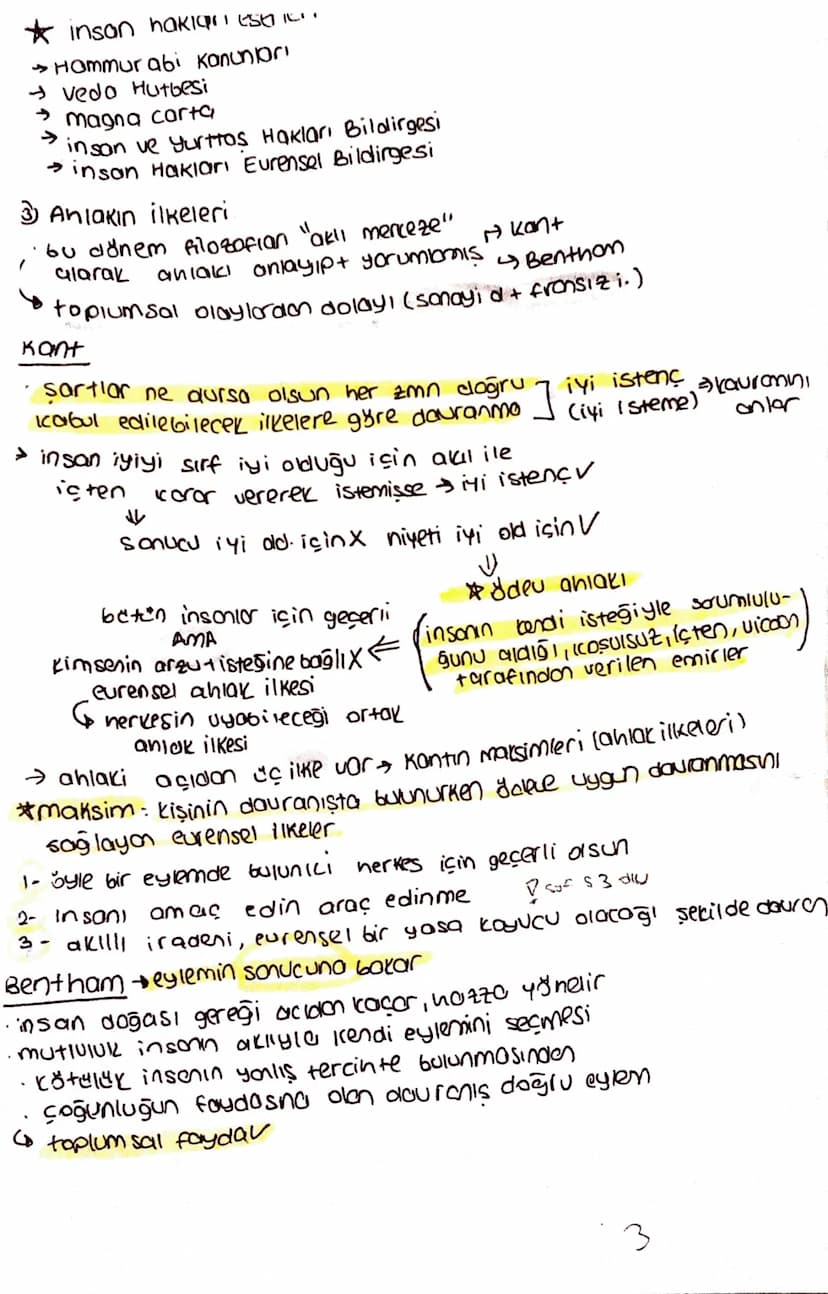 ★ insan hakları
→ Hammurabi Kanunları
→ Veda Hutbesi
→ magna carta
→ insan ve Yurttaş Hakları Bildirgesi
→ insan Hakları Evrensel Bildirgesi
③ Ahlakın ilkeleri
· bu dönem filozofları "aklı merkeze" → Kant
alarak ahlakı anlayıp + yorumlamış → Bentham
↳ toplumsal olaylardan dolayı (sanayi d + fransız i.)
Kant
· şartlar ne olursa olsun her zmn doğru ] iyi istenç ⇒ kavramını
kabul edilebilecek ilkelere göre davranma ] (iyi isteme) anlar
→ insan iyiyi sırf iyi olduğu için akıl ile
içten karar vererek istemişse → iyi istenç ✓
⇓
sonucu iyi old. için X niyeti iyi old için ✓
⇓
★ ödev ahlakı
bütün insanlar için geçerli (insanın kendi isteğiyle sorumlulu-
AMA ⇐ ğunu aldığı, koşulsuz, içten, vicdan
kimsenin arzu + isteğine bağlı X tarafından verilen emirler)
evrensel ahlak ilkesi
↳ herkesin uyabileceği ortak
ahlak ilkesi
→ ahlaki açıdan üç ilke var → Kantın maksimleri (ahlak ilkeleri)
*maksim: kişinin davranışta bulunurken ödeve uygun davranmasını
sağlayan evrensel ilkeler
1- öyle bir eylemde bulun ki herkes için geçerli olsun
2- insanı amaç edin araç edinme
3- akıllı iradeni, evrensel bir yasa koyucu olacağı şekilde davran
Bentham → eylemin sonucuna bakar
· insan doğası gereği acıdan kaçar, hazza yönelir
· mutluluk insanın aklıyla kendi eylemini seçmesi
· kötülük insanın yanlış tercihte bulunmasından
· çoğunluğun faydasına olan davranış doğru eylem
↳ toplumsal fayda ✓
3